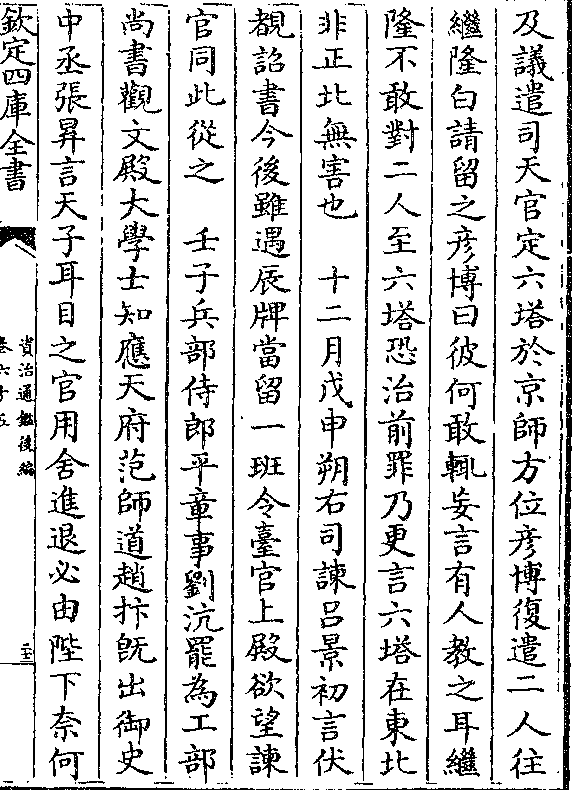 及議遣司天官定六塔於京師方位彦博復遣二人往
繼隆白請留之彦博曰彼何敢輒妄言有人教之耳繼
隆不敢對二人至六塔恐治前罪乃更言六塔在東北
非正北無害也　十二月戊申朔右司諫吕景初言伏
覩詔書今後雖遇辰牌當留一班令臺官上殿欲望諫
官同此從之　壬子兵部侍郎平章事劉沆罷為工部
尚書觀文殿大學士知應天府范師道趙抃既出御史
中丞張昇言天子耳目之官用舍進退必由陛下奈何
欽定四庫全書
資治通鑑後編
卷六十五